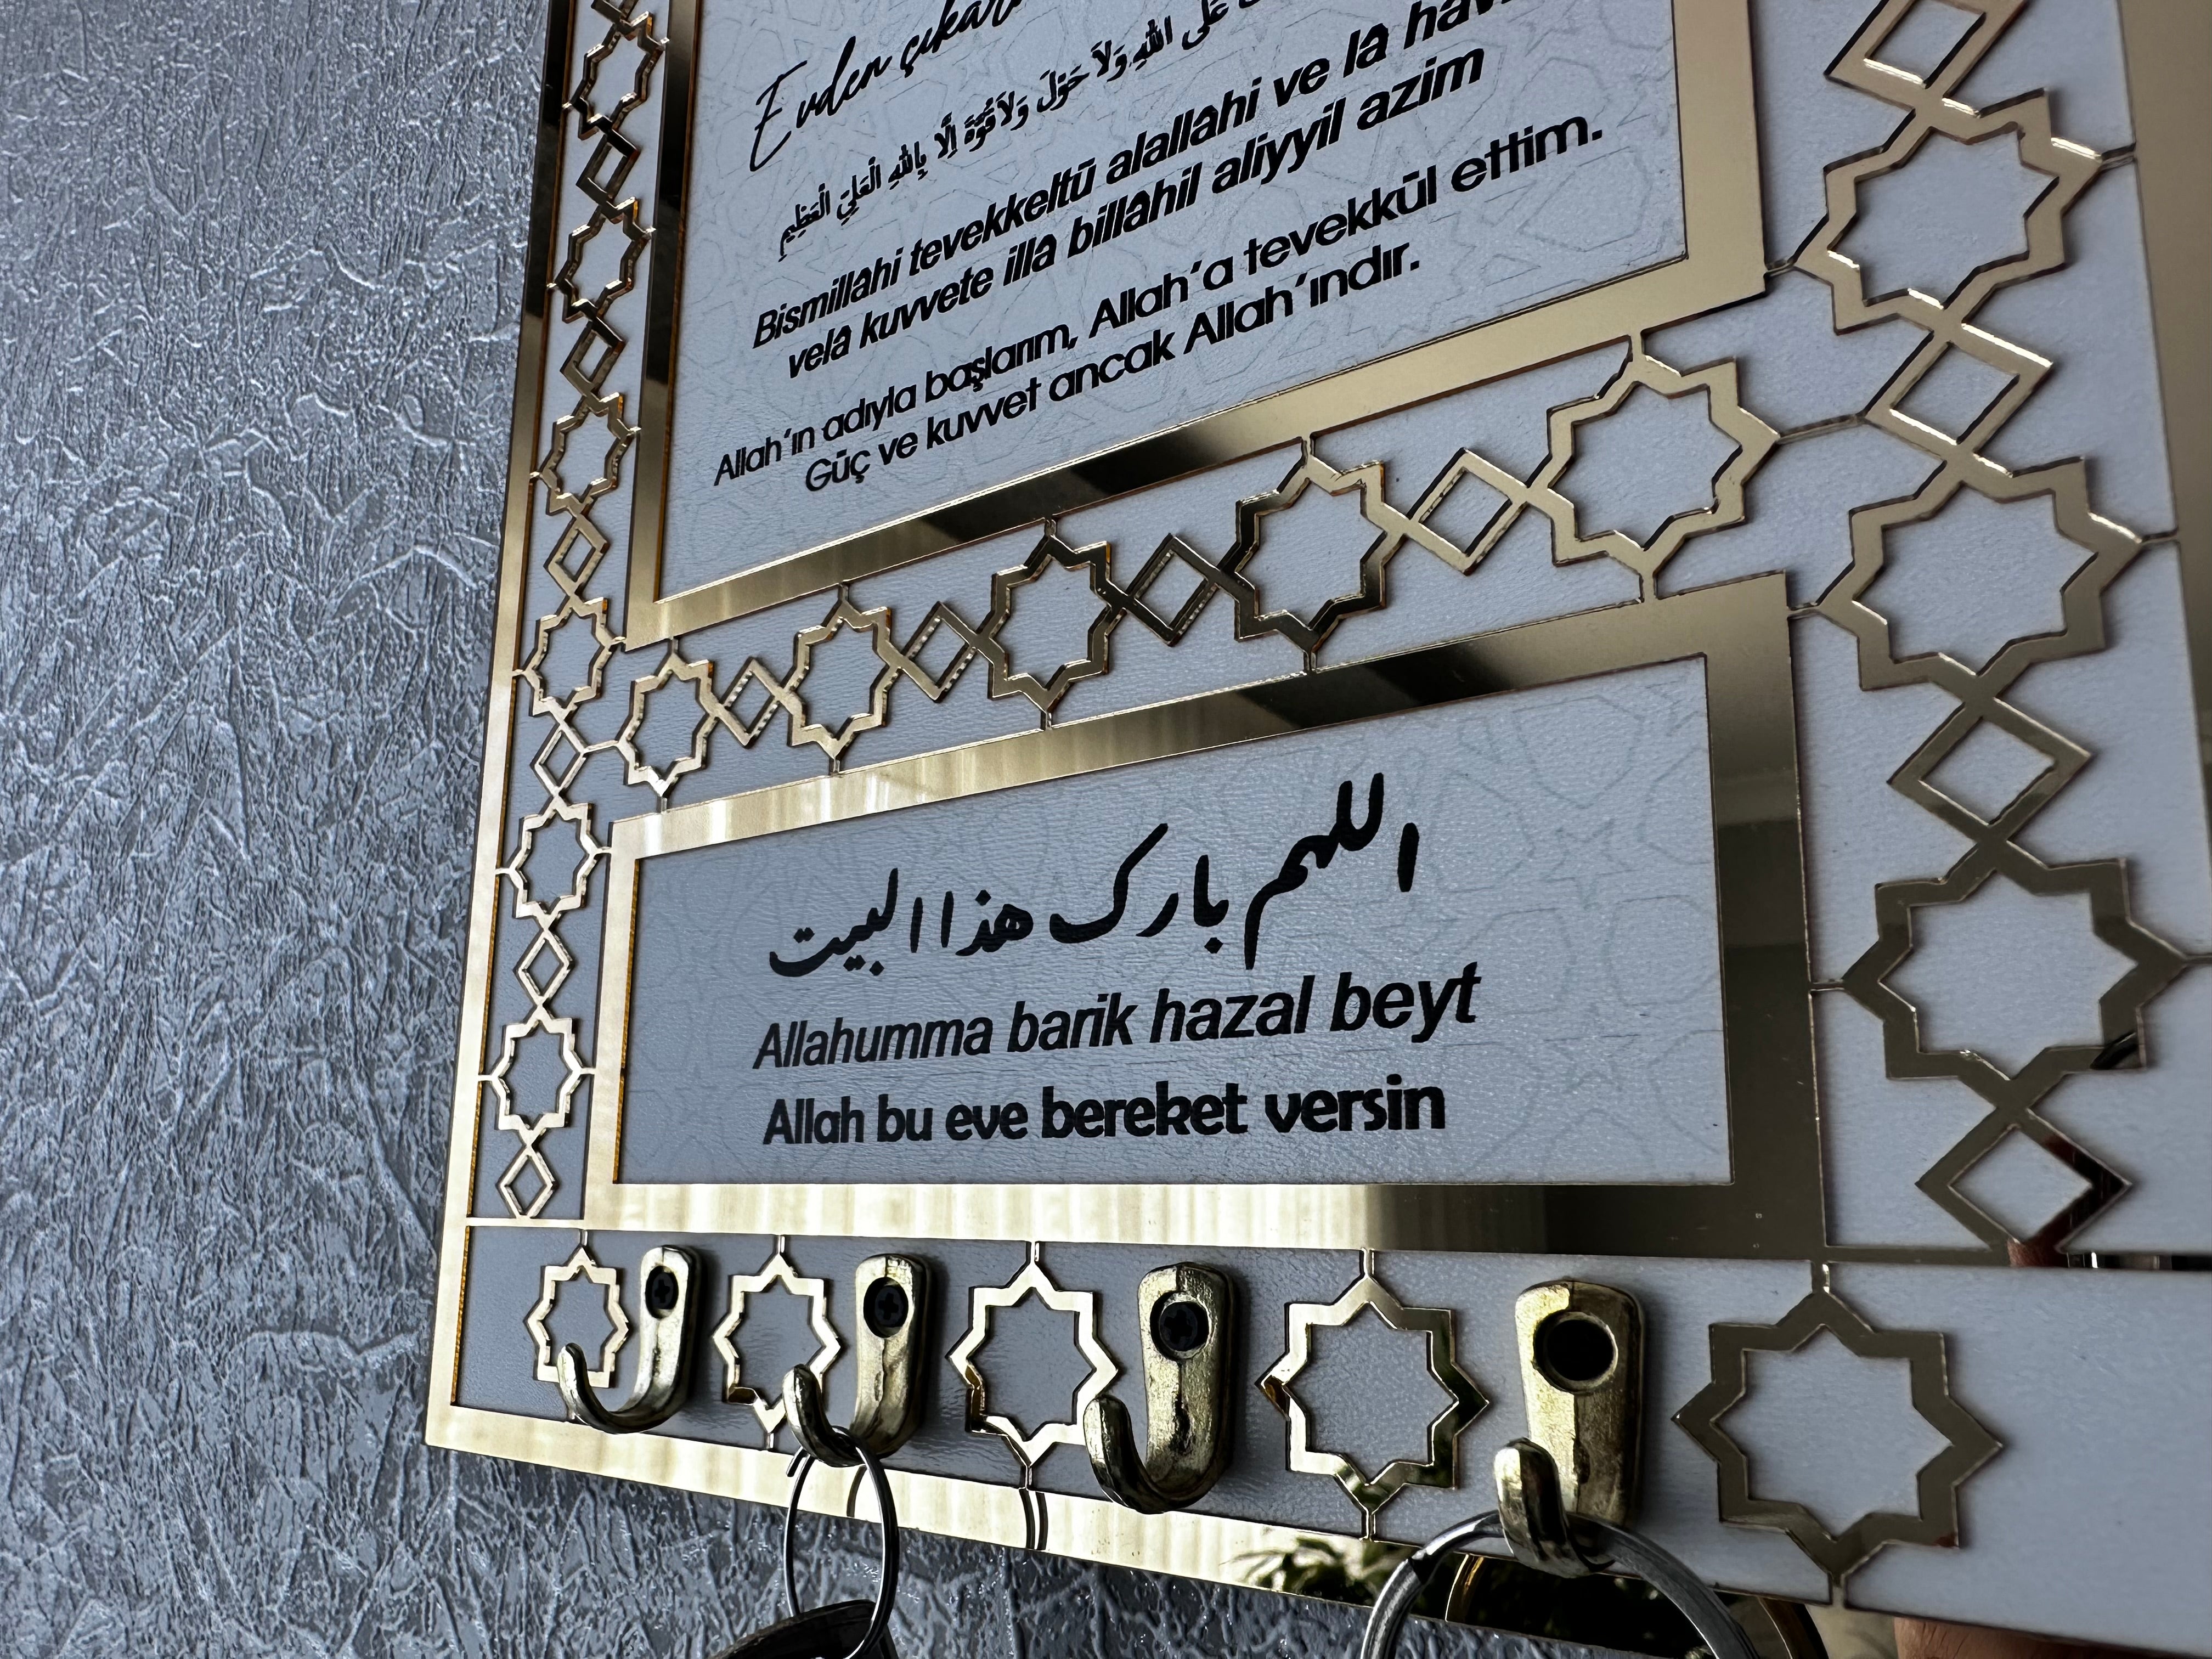 Evden çıkar
عَلَى اللهِ وَلاَ حَوْلَ وَلاَ قُوَّةَ اِلَّا بِاللهِ الْعَلِيِّ الْعَظِيمِ
Bismillâhi tevekkeltü alallâhi ve lâ hav
velâ kuvvete illâ billâhil aliyyil azim
Allah'ın adıyla başlarım, Allah'a tevekkül ettim.
Güç ve kuvvet ancak Allah'ındır.
اللهم بارك هذا البيت
Allahumma barik hazal beyt
Allah bu eve bereket versin